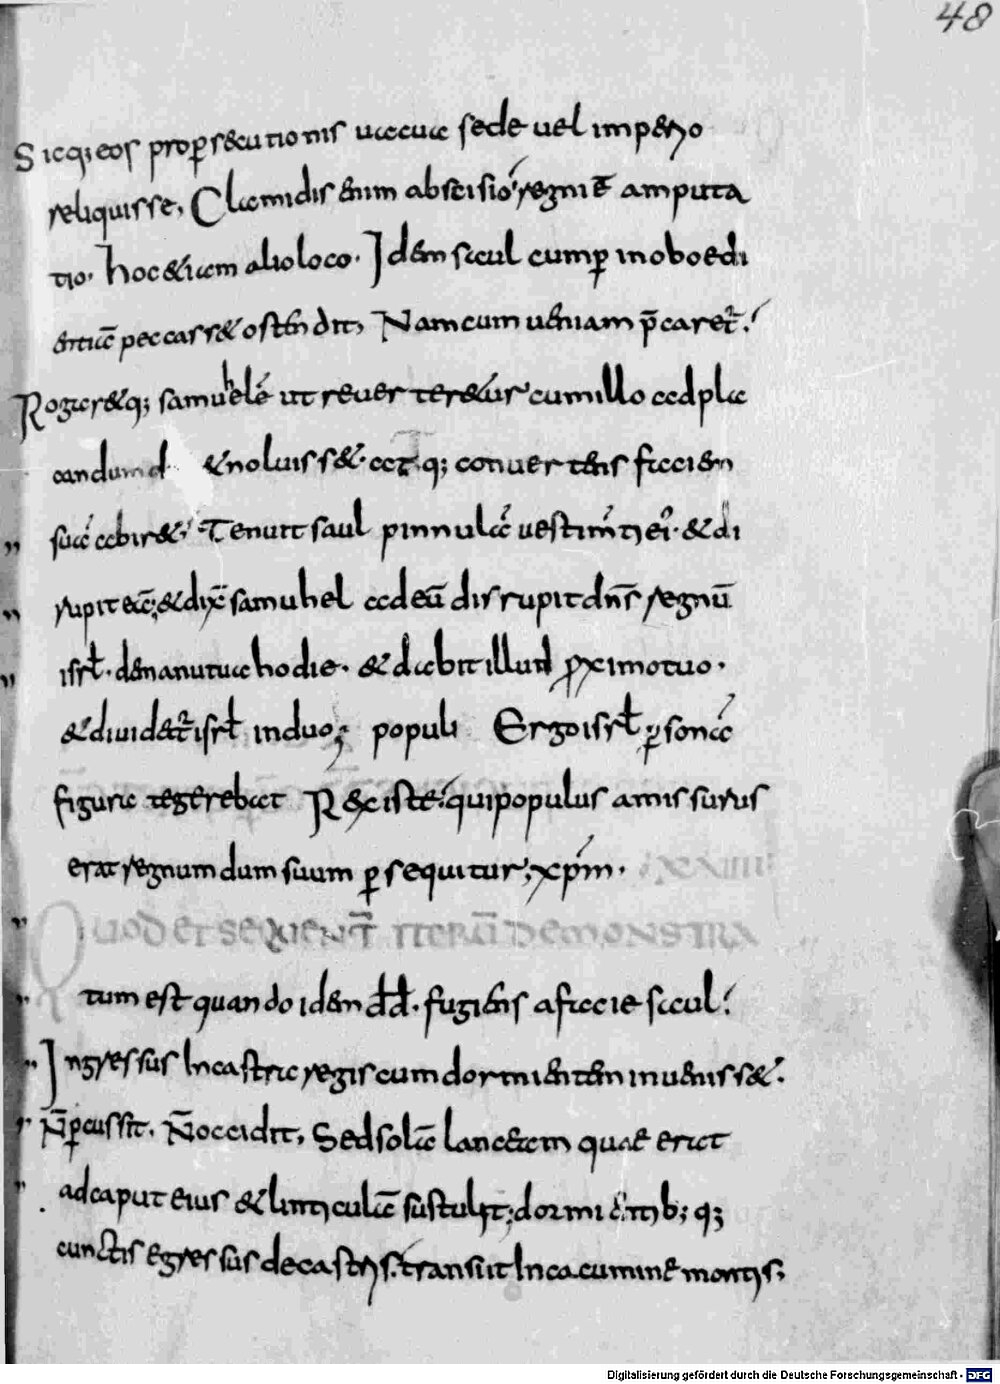 48
Sicq; eos propersecutionis uacua sede uel imperio
reliquisse, Clamidis enim abscisio regni ē amputa
tio. hoc etiam alioloco. Idem saul cum per inoboedi
entiā peccasset ostendit, Nam cum ueniam p̄caretur.
Rogaretq; samuhelē ut reuerteretur cum illo ad pla
candum d et noluisset. atq; conuertens faciem
suā abiret. Tenuit saul pinnulā uestimti ei. et di
rupit eā; et dix̄ samuhel ad eū disrupit dn̄s regnū
isrl. de manu tua hodie. et dabit illud proximo tuo.
et diuidetur isrl in duo; populi Ergo isrl personā
figura tegerebat Rex iste qui populus amissurus
erat regnum dum suum persequitur xp̄m.
LXXIIII
Quod et sequent̄ iterū demonstra
tum est quando idem dd. fugiens a facie saul.
Ingressus In castra regis cum dormientem inuenisset.
N̄ percussit, N̄ occidit, Sed solā lanceam quae erat
ad caput eius et lenticulā sustulit; dormientib; q;
cunctis egressus de castris. transiit In cacumine montis,
Digitalisierung gefördert durch die Deutsche Forschungsgemeinschaft - DFG